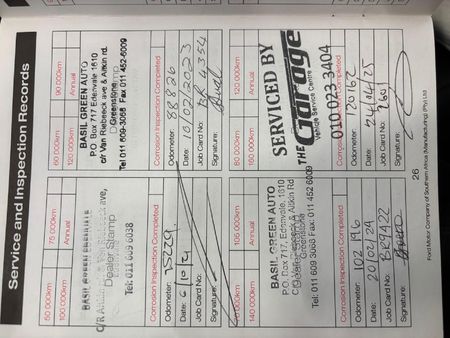 Service and Inspection Records
50 000km 75 000km
100 000km Annual
BASIL GREEN
Dealer Stamp
Tel: 011 609 6038
Corrosion Inspection Completed
Odometer:
Date: 6/10/21
Job Card No:
Signature:
60 000km 90 000km
120 000km Annual
BASIL GREEN AUTO
P.O. Box 717 Edenvale 1610
c/r Van Riebeeck ave & Aitkin rd.
Greenstone
Tel 011 609-3068 Fax 011 452-6009
Corrosion Inspection Completed
Odometer: 88826
Date: 10/02/2023
Job Card No: BR 4354
Signature:
70 000km 105 000km
140 000km Annual
BASIL GREEN AUTO
P.O. Box 717, Edenvale, 1610
C/r Van Riebeeck & Aitkin Rd
Greenstone
Tel: 011 609 3068 Fax: 011 452 6009
Corrosion Inspection Completed
Odometer: 102196
Date: 20/02/24
Job Card No: BR9422
Signature:
80 000km 120 000km
160 000km Annual
SERVICED BY
THE Garage
Vehicle Service Centre
010 023 3404
Corrosion Inspection Completed
Odometer: 120162
Date: 24/14/25
Job Card No: 9609
Signature:
26
Ford Motor Company of Southern Africa (Manufacturing) (Pty) Ltd